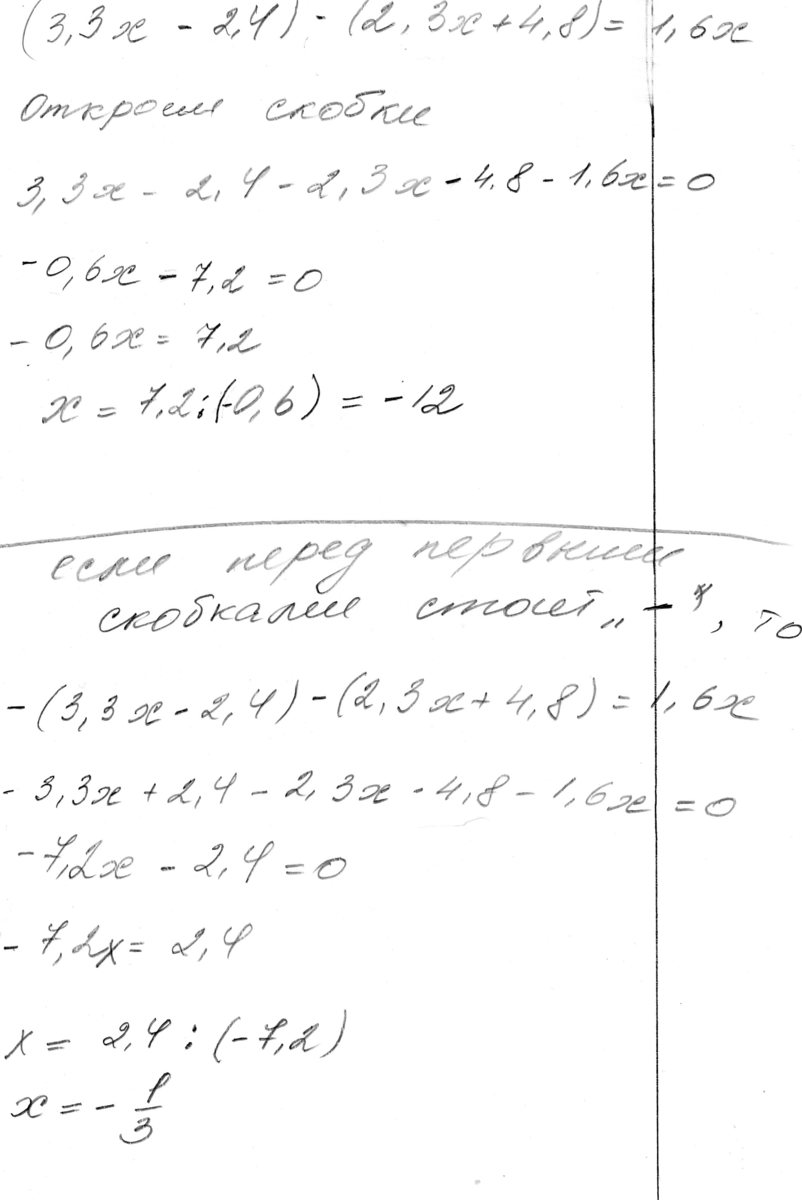 (3,3x - 2,4) - (2,3x + 4,8) = 1,6x
откроем скобки
3,3x - 2,4 - 2,3x - 4,8 - 1,6x = 0
-0,6x - 7,2 = 0
- 0,6x = 7,2
x = 7,2 : (-0,6) = -12
если перед первыми
скобками стоит „ - ", то
- (3,3x - 2,4) - (2,3x + 4,8) = 1,6x
- 3,3x + 2,4 - 2,3x - 4,8 - 1,6x = 0
-7,2x - 2,4 = 0
- 7,2x = 2,4
x = 2,4 : (-7,2)
x = - 1/3